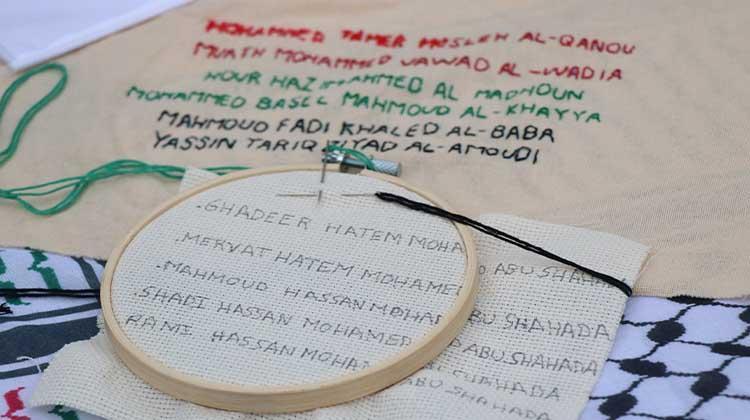 MOHAMMED TAMER MOSLEH AL-QANOU
MUATH MOHAMMED JAWAD AL-WADIA
HOUR HAZIM AHMED AL MADHOUN
MOHAMMED BASEL MAHMOUD AL-KHAYYA
MAHMOUD FADI KHALED AL-BABA
YASSIN TARIQ ZIYAD AL-AMOUDI
.GHADEER HATEM MOHA ABUSHAHADA
.MERVAT HATEM MOHAMED
.MAHMOUD HASSAN MOHAM ABU SHAHADA
.SHADI HASSAN MOHAMED ABU SHAHADA
RAMI HASSAN MOHAM SHAHADA
ABU SHAHADA